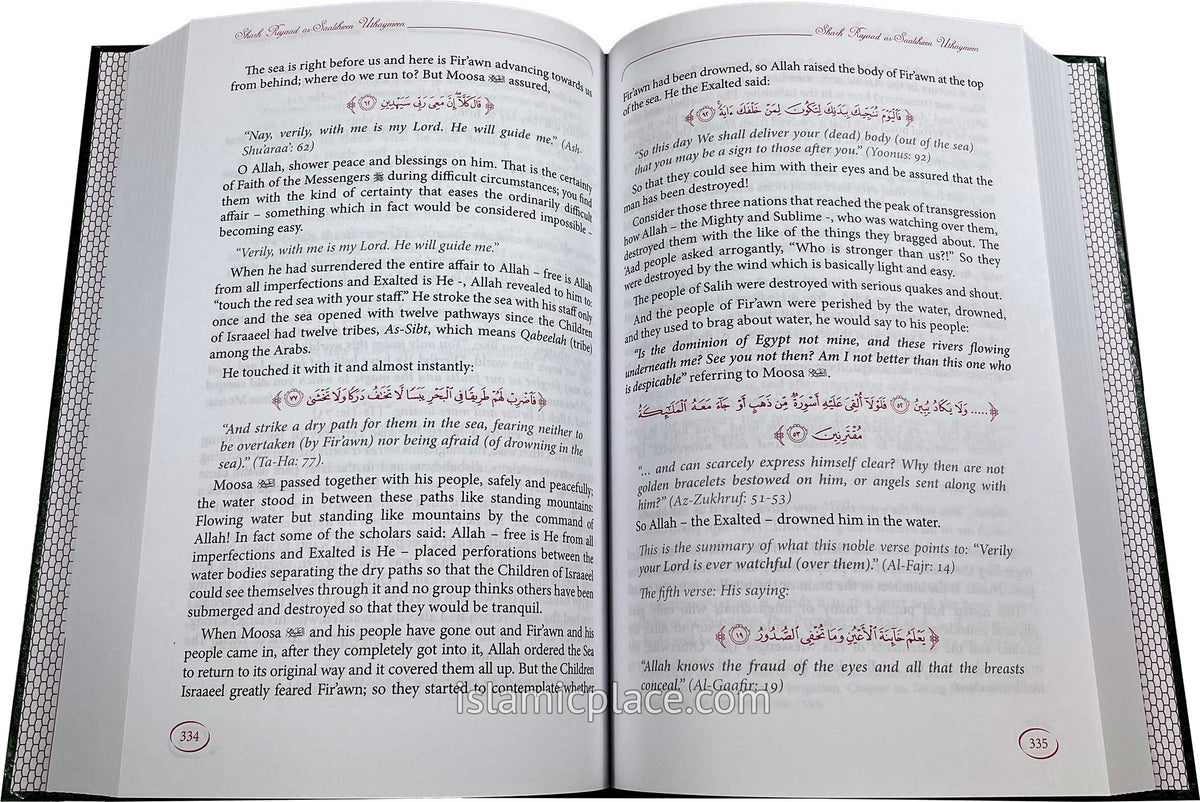 Sharh Riyaad as-Saaliheen Uthaymeen
The sea is right before us and here is Fir'awn advancing towards us
from behind; where do we run? But Moosa ﷺ assured,
﴿ قَالَ كَلَّا إِنَّ مَعِيَ رَبِّي سَيَهْدِينِ ٦٢ ﴾
"Nay, verily, with me is my Lord. He will guide me." (Ash-
Shu'araa': 62)
O Allah, shower peace and blessings on him. That is the certainty
of Faith of the Messengers ﷺ during difficult circumstances; you find
them with the kind of certainty that eases the ordinarily difficult
affair – something which in fact would be considered impossible –
becoming easy.
"Verily, with me is my Lord. He will guide me."
When he had surrendered the entire affair to Allah – free is Allah
from all imperfections and Exalted is He -, Allah revealed to him to:
"touch the red sea with your staff." He stroke the sea with his staff only
once and the sea opened with twelve pathways since the Children
of Israaeel had twelve tribes, As-Sibt, which means Qabeelah (tribe)
among the Arabs.
He touched it with it and almost instantly:
﴿ فَاضْرِبْ لَهُمْ طَرِيقًا فِي الْبَحْرِ يَبَسًا لَّا تَخَافُ دَرَكًا وَلَا تَخْشَىٰ ٧٧ ﴾
"And strike a dry path for them in the sea, fearing neither to
be overtaken (by Fir'awn) nor being afraid (of drowning in the
sea)." (Ta-Ha: 77).
Moosa ﷺ passed together with his people, safely and peacefully;
the water stood in between these paths like standing mountains:
Flowing water but standing like mountains by the command of
Allah! In fact some of the scholars said: Allah – free is He from all
imperfections and Exalted is He – placed perforations between the
water bodies separating the dry paths so that the Children of Israaeel
could see themselves through it and no group thinks others have been
submerged and destroyed so that they would be tranquil.
When Moosa ﷺ and his people have gone out and Fir'awn and his
people came in, after they completely got into it, Allah ordered the Sea
to return to its original way and it covered them all up. But the Children
Israaeel greatly feared Fir'awn; so they started to contemplate whether
334
Sharh Riyaad as-Saaliheen Uthaymeen
Fir'awn had been drowned, so Allah raised the body of Fir'awn at the top
of the sea. He the Exalted said:
﴿ فَالْيَوْمَ نُنَجِّيكَ بِبَدَنِكَ لِتَكُونَ لِمَنْ خَلْفَكَ ءَايَةً ٩٢ ﴾
"So this day We shall deliver your (dead) body (out of the sea)
that you may be a sign to those after you." (Yoonus: 92)
So that they could see him with their eyes and be assured that the
man has been destroyed!
Consider those three nations that reached the peak of transgression
how Allah – the Mighty and Sublime -, who was watching over them,
destroyed them with the like of the things they bragged about. The
'Aad people asked arrogantly, "Who is stronger than us?!" So they
were destroyed by the wind which is basically light and easy.
The people of Salih were destroyed with serious quakes and shout.
And the people of Fir'awn were perished by the water, drowned,
and they used to brag about water, he would say to his people:
"Is the dominion of Egypt not mine, and these rivers flowing
underneath me? See you not then? Am I not better than this one who
is despicable" referring to Moosa ﷺ.
﴿..... وَلَا يَكَادُ يُبِينُ ٥٢ فَلَوْلَا أُلْقِيَ عَلَيْهِ أَسْوِرَةٌ مِّن ذَهَبٍ أَوْ جَاءَ مَعَهُ الْمَلَائِكَةُ
مُقْتَرِنِينَ ٥٣ ﴾
"... and can scarcely express himself clear? Why then are not
golden bracelets bestowed on him, or angels sent along with
him?" (Az-Zukhruf: 51-53)
So Allah – the Exalted – drowned him in the water.
This is the summary of what this noble verse points to: "Verily
your Lord is ever watchful (over them)." (Al-Fajr: 14)
The fifth verse: His saying:
﴿ يَعْلَمُ خَائِنَةَ الْأَعْيُنِ وَمَا تُخْفِي الصُّدُورُ ١٩ ﴾
"Allah knows the fraud of the eyes and all that the breasts
conceal." (Al-Gaafir: 19)
335
islamicplace.com